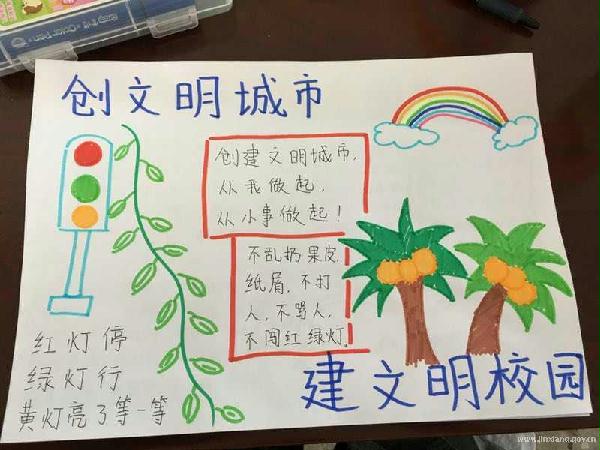 创文明城市
创建文明城市,
从我做起,
从小事做起!
不乱扔果皮
纸屑,不打
人,不骂人,
不闯红绿灯.
红灯停
绿灯行
黄灯亮了等一等
建文明校园